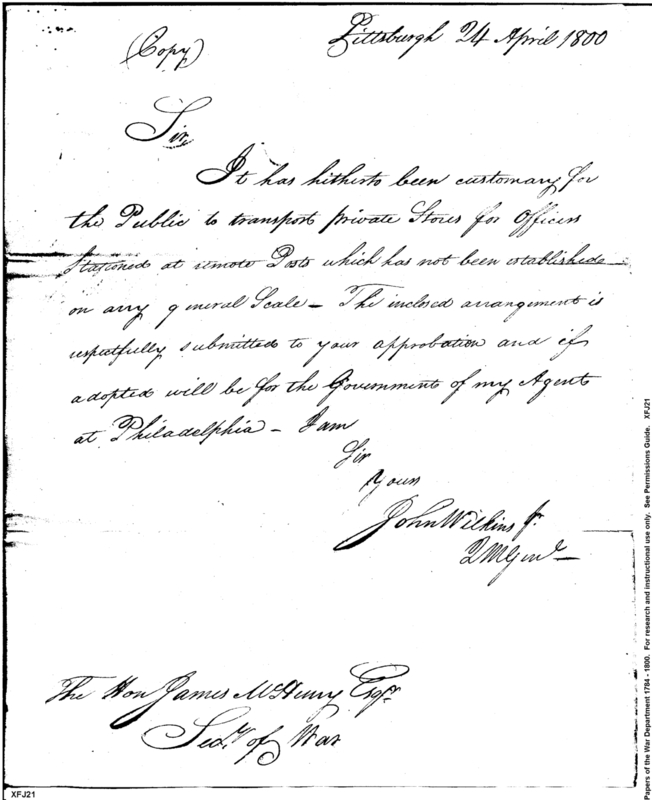 (Copy)
Pittsburgh 24 April 1800
Sir,
It has hitherto been customary for
the Public to transport private Stores for Officers
Stationed at remote Posts which has not been established
on any general Scale – The inclosed arrangement is
respectfully submitted to your approbation and if
adopted will be for the Government of my Agents
at Philadelphia – I am
Sir
Yours
John Wilkins Jr.
QMGenl –
The Hon James McHenry Esqr.
Secy of War
XFJ21
Papers of the War Department 1784 - 1800. For research and instructional use only. See Permissions Guide. XFJ21